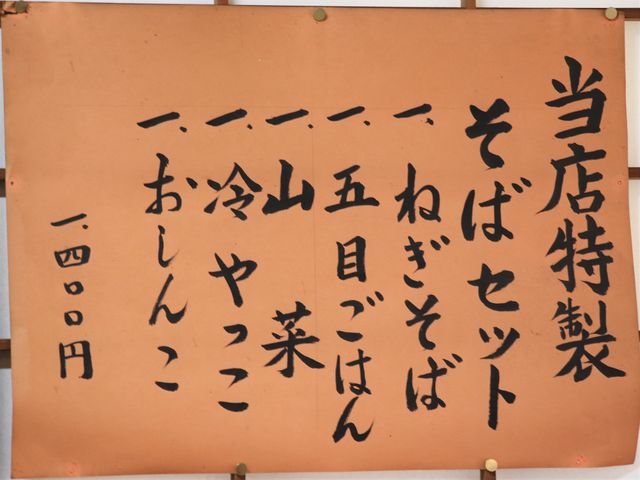 当店特製
そばセット
一、ねぎそば
一、五目ごはん
一、山菜
一、冷やっこ
一、おしんこ
一、四〇〇円